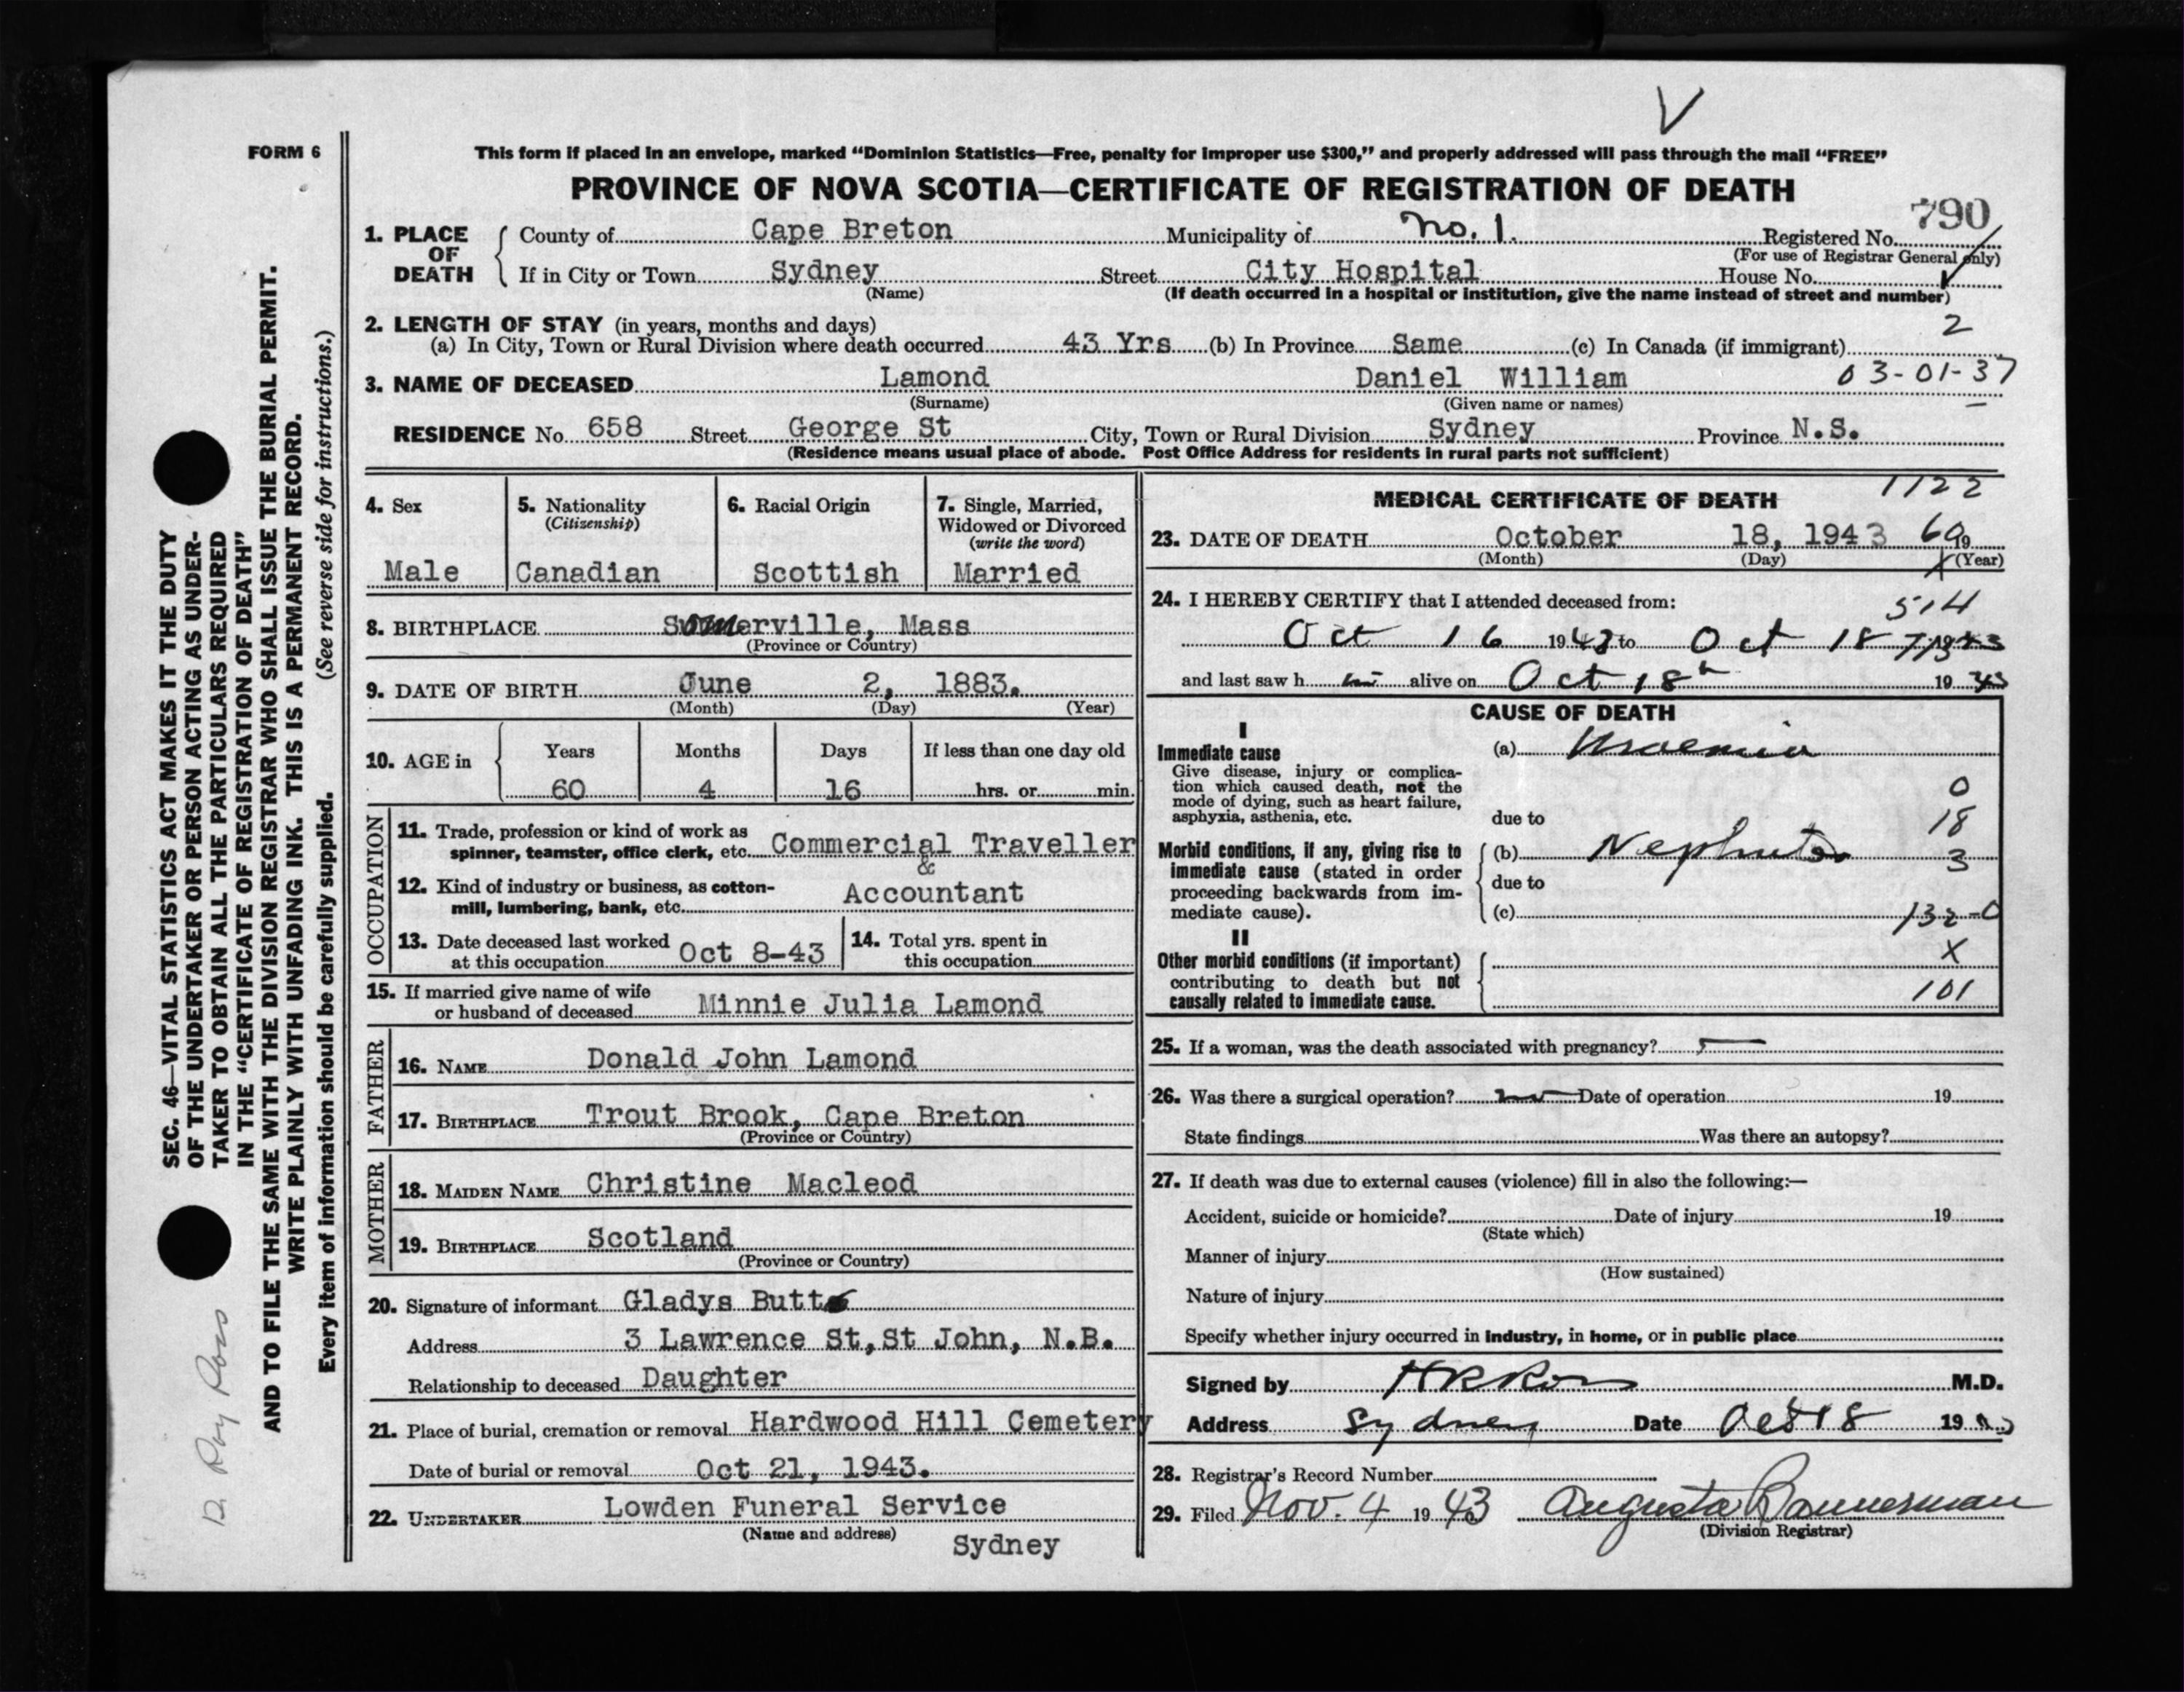 V
FORM 6
This form if placed in an envelope, marked “Dominion Statistics—Free, penalty for improper use $300,” and properly addressed will pass through the mail “FREE”
PROVINCE OF NOVA SCOTIA—CERTIFICATE OF REGISTRATION OF DEATH
790
1. PLACE OF DEATH { County of Cape Breton Municipality of No. 1. Registered No.
(For use of Registrar General only)
If in City or Town Sydney Street City Hospital House No.
(Name) (If death occurred in a hospital or institution, give the name instead of street and number)
2. LENGTH OF STAY (in years, months and days) 2
(a) In City, Town or Rural Division where death occurred 43 Yrs (b) In Province Same (c) In Canada (if immigrant)
3. NAME OF DECEASED Lamond Daniel William 03-01-37
(Surname) (Given name or names)
RESIDENCE No. 658 Street George St City, Town or Rural Division Sydney Province N.S.
(Residence means usual place of abode. Post Office Address for residents in rural parts not sufficient)
4. Sex 5. Nationality (Citizenship) 6. Racial Origin 7. Single, Married, Widowed or Divorced (write the word)
Male Canadian Scottish Married
8. BIRTHPLACE Somerville, Mass
(Province or Country)
9. DATE OF BIRTH June 2, 1883.
(Month) (Day) (Year)
10. AGE in { Years Months Days If less than one day old
60 4 16 hrs. or min.
OCCUPATION
11. Trade, profession or kind of work as
spinner, teamster, office clerk, etc. Commercial Traveller
&
12. Kind of industry or business, as cotton-
mill, lumbering, bank, etc. Accountant
13. Date deceased last worked
at this occupation Oct 8-43
14. Total yrs. spent in
this occupation
15. If married give name of wife
or husband of deceased Minnie Julia Lamond
FATHER
16. NAME Donald John Lamond
17. BIRTHPLACE Trout Brook, Cape Breton
(Province or Country)
MOTHER
18. MAIDEN NAME Christine Macleod
19. BIRTHPLACE Scotland
(Province or Country)
20. Signature of informant Gladys Butt
Address 3 Lawrence St, St John, N.B.
Relationship to deceased Daughter
21. Place of burial, cremation or removal Hardwood Hill Cemetery
Date of burial or removal Oct 21, 1943.
22. UNDERTAKER Lowden Funeral Service
(Name and address) Sydney
1122
MEDICAL CERTIFICATE OF DEATH
23. DATE OF DEATH October 18, 1943 60
(Month) (Day) (Year)
X
24. I HEREBY CERTIFY that I attended deceased from:
514
Oct 16 1943 to Oct 18 1943
and last saw h im alive on Oct 18th 1943
CAUSE OF DEATH
I
Immediate cause (a) Uraemia
Give disease, injury or complica-
tion which caused death, not the
mode of dying, such as heart failure,
asphyxia, asthenia, etc. due to
0
18
3
Morbid conditions, if any, giving rise to
immediate cause (stated in order
proceeding backwards from im-
mediate cause).
(b) Nephritis
due to
(c) 132-0
II
X
Other morbid conditions (if important)
contributing to death but not
causally related to immediate cause.
101
25. If a woman, was the death associated with pregnancy?
26. Was there a surgical operation? no Date of operation 19
State findings Was there an autopsy?
27. If death was due to external causes (violence) fill in also the following:—
Accident, suicide or homicide? Date of injury 19
(State which)
Manner of injury
(How sustained)
Nature of injury
Specify whether injury occurred in industry, in home, or in public place
Signed by H R Ross M.D.
Address Sydney Date Oct 18 1943
28. Registrar's Record Number
29. Filed Nov. 4 1943 Augusta Bannerman
(Division Registrar)
SEC. 46—VITAL STATISTICS ACT MAKES IT THE DUTY
OF THE UNDERTAKER OR PERSON ACTING AS UNDER-
TAKER TO OBTAIN ALL THE PARTICULARS REQUIRED
IN THE “CERTIFICATE OF REGISTRATION OF DEATH”
AND TO FILE THE SAME WITH THE DIVISION REGISTRAR WHO SHALL ISSUE THE BURIAL PERMIT.
WRITE PLAINLY WITH UNFADING INK. THIS IS A PERMANENT RECORD.
Every item of information should be carefully supplied. (See reverse side for instructions.)
Roy Ross